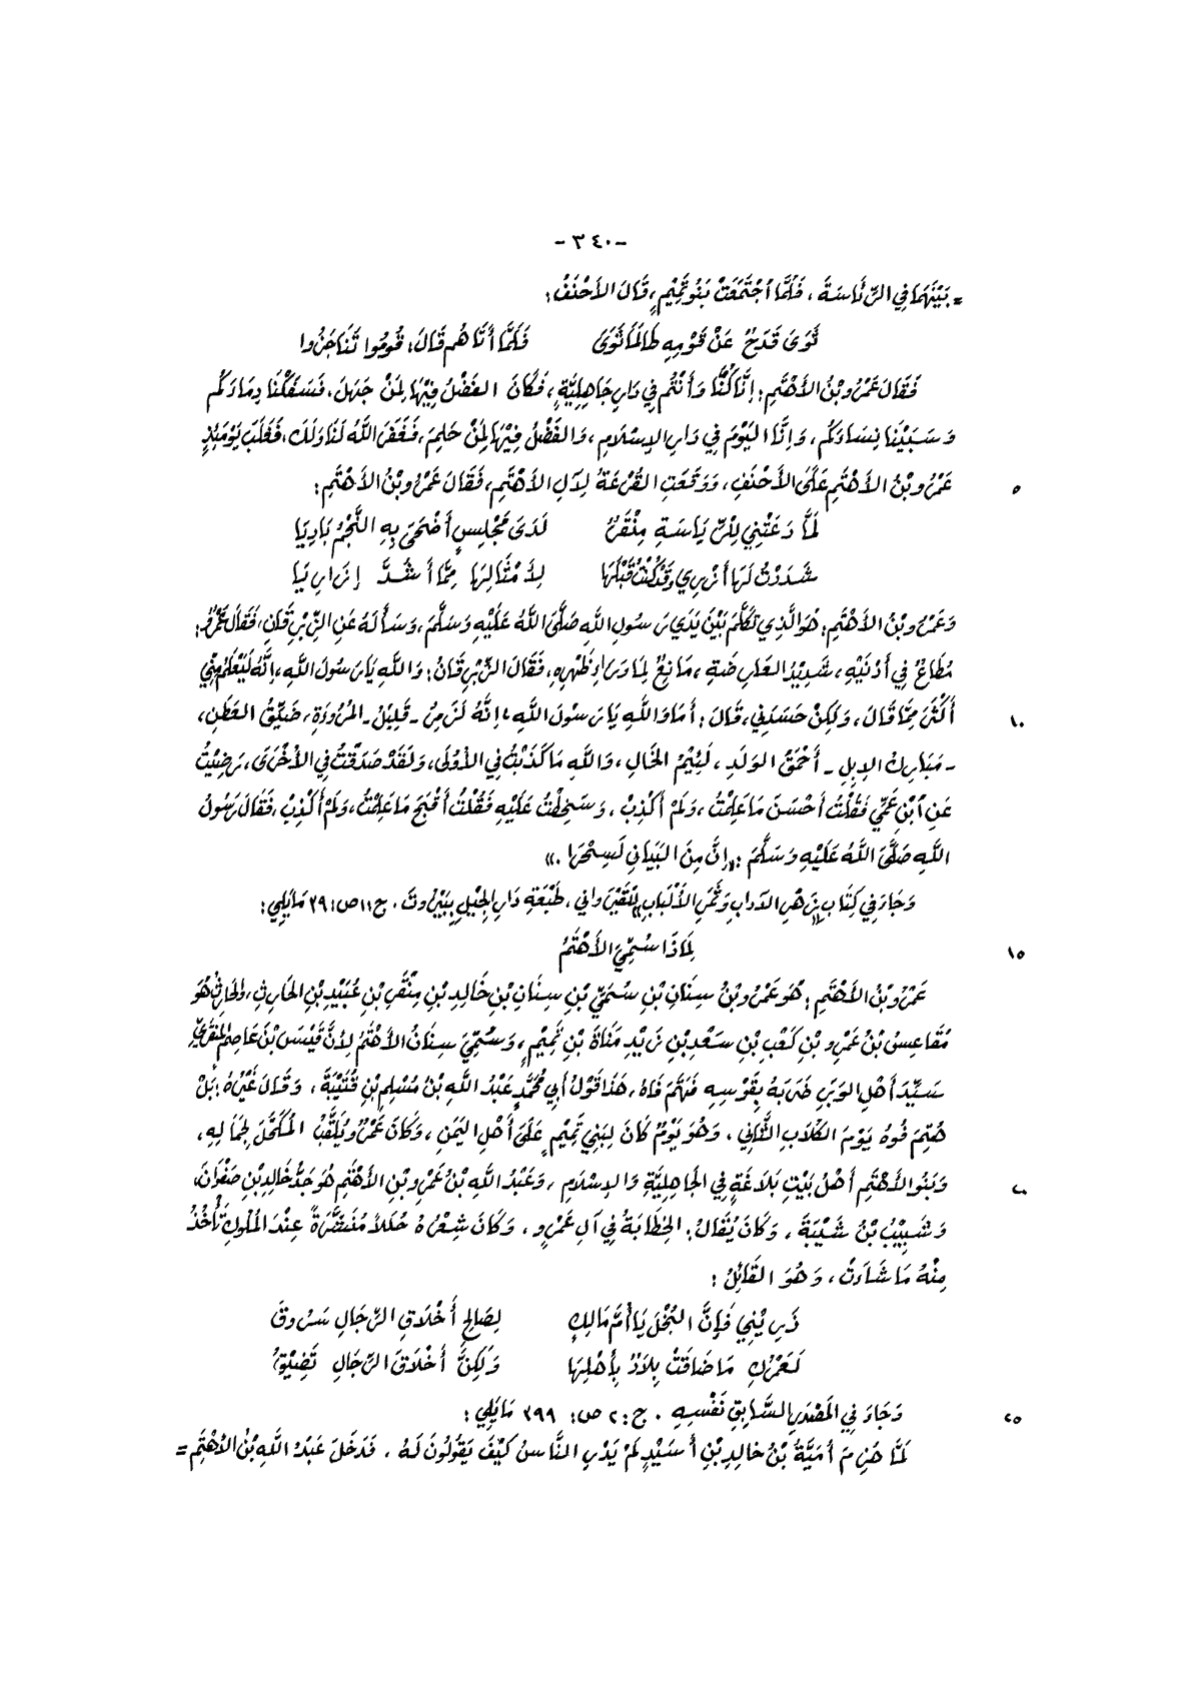 -٣٤٠-
= بَيْنَهُمَا فِي الرِّئَاسَةِ، فَلَمَّا اجْتَمَعَتْ بَنُو تَمِيْمٍ، قَالَ الأَحْنَفُ:
ثَوَى قَدَحٌ عَنْ قَوْمِهِ طَالَمَا ثَوَى    فَلَمَّا أَتَاهُم قَالَ: قُومُوا تَنَاجَزُوا
فَقَالَ عَمْرُو بْنُ الأَهْتَمِ: إِنَّا كُنَّا وَأَنْتُم فِي دَارِ جَاهِلِيَّةٍ، فَكَانَ الفَضْلُ فِيْهَا لِمَنْ جَهِلَ، فَسَفَكْنَا دِمَاءَكُم
وَسَبَيْنَا نِسَاءَكُم، وَإِنَّا اليَوْمَ فِي دَارِ الإِسْلَامِ، وَالفَضْلُ فِيْهَا لِمَنْ حَلِمَ، فَغَفَرَ اللَّهُ لَنَا وَلَكَ، فَغَلَبَ يَوْمَئِذٍ
عَمْرُو بْنُ الأَهْتَمِ عَلَى الأَحْنَفِ، وَوَقَعَتِ القُرْعَةُ لِآلِ الأَهْتَمِ، فَقَالَ عَمْرُو بْنُ الأَهْتَمِ: ٥
لَمَّا دَعَتْنِي لِلرِّيَاسَةِ مِنْقَرٌ    لَدَى مَجْلِسٍ أَضْحَى بِهِ النَّجْمُ بَادِيَا
شَدَدْتُ لَهَا أَزْرِي وَقَدْ كُنْتُ قَبْلَهَا    لِأَمْثَالِهَا مِمَّا أَشُدُّ إِزَارِيَا
وَعَمْرُو بْنُ الأَهْتَمِ: هُوَ الَّذِي تَكَلَّمَ بَيْنَ يَدَي رَسُولِ اللهِ صَلَّى اللَّهُ عَلَيْهِ وَسَلَّمَ، وَسَأَلَهُ عَنِ الزِّبْرِقَانِ، فَقَالَ عَمْرٌو:
مُطَاعٌ فِي أَدْنَيْهِ، شَدِيْدُ العَارِضَةِ، مَانِعٌ لِمَا وَرَاءَ ظَهْرِهِ، فَقَالَ الزِّبْرِقَانُ: وَاللَّهِ يَا رَسُولَ اللَّهِ، إِنَّهُ لَيَعْلَمُ مِنِّي
أَكْثَرَ مِمَّا قَالَ، وَلَكِنْ حَسَدَنِي، قَالَ: أَمَا وَاللَّهِ يَا رَسُولَ اللَّهِ، إِنَّهُ لَزَمِرُ - قَلِيْلُ - المُرُوءَةِ، ضَيِّقُ العَطَنِ، ١٠
- مَبَارِكُ الإِبِلِ - أَحْمَقُ الوَلَدِ، لَئِيْمُ الخَالِ، وَاللَّهِ مَا كَذَبْتُ فِي الأُوْلَى، وَلَقَدْ صَدَقْتُ فِي الأُخْرَى، رَضِيْتُ
عَنِ ابْنِ عَمِّي فَقُلْتُ أَحْسَنَ مَا عَلِمْتُ، وَلَمْ أَكْذِبْ، وَسَخِطْتُ عَلَيْهِ فَقُلْتُ أَقْبَحَ مَا عَلِمْتُ، وَلَمْ أَكْذِبْ، فَقَالَ رَسُولُ
اللَّهِ صَلَّى اللَّهُ عَلَيْهِ وَسَلَّمَ: «إِنَّ مِنَ البَيَانِ لَسِحْرَا.»
وَجَاءَ فِي كِتَابِ «زَهْرِ الآدَابِ وَثَمَرِ الأَلْبَابِ» لِلقَيْرَوَانِي، طَبْعَةِ دَارِ الجِيْلِ بِبَيْرُوتَ. ج: ١ ص: ٣٩ مَا يَلِي:
لِمَاذَا سُمِّيَ الأَهْتَمُ ١٥
عَمْرُو بْنُ الأَهْتَمِ: هُوَ عَمْرُو بْنُ سِنَانِ بْنِ سُمَيِّ بْنِ سِنَانِ بْنِ خَالِدِ بْنِ مِنْقَرِ بْنِ عُبَيْدِ بْنِ الحَارِثِ، وَالحَارِثُ هُوَ
مُقَاعِسُ بْنُ عَمْرِو بْنِ كَعْبِ بْنِ سَعْدِ بْنِ زَيْدِ مَنَاةَ بْنِ تَمِيْمٍ، وَسُمِّيَ سِنَانُ الأَهْتَمُ لِأَنَّ قَيْسَ بْنَ عَاصِمٍ المِنْقَرِيَّ
سَيِّدَ أَهْلِ الوَبَرِ ضَرَبَهُ بِقَوْسِهِ فَهَتَمَ فَاهُ، هَذَا قَوْلُ أَبِي مُحَمَّدٍ عَبْدُ اللَّهِ بْنُ مُسْلِمِ بْنِ قُتَيْبَةَ، وَقَالَ غَيْرُهُ: بَلْ
هُتِمَ فُوهُ يَوْمَ الكُلَابِ الثَّانِي، وَهُوَ يَوْمٌ كَانَ لِبَنِي تَمِيْمٍ عَلَى أَهْلِ اليَمَنِ، وَكَانَ عَمْرٌو يُلَقَّبُ المُكَحَّلَ لِجَمَالِهِ،
وَبَنُو الأَهْتَمِ أَهْلُ بَيْتِ بَلَاغَةٍ فِي الجَاهِلِيَّةِ وَالإِسْلَامِ، وَعَبْدُ اللَّهِ بْنُ عَمْرِو بْنِ الأَهْتَمِ هُوَ جَدُّ خَالِدِ بْنِ صَفْوَانَ، ٢٠
وَشَبِيْبُ بْنُ شَيْبَةَ، وَكَانَ يُقَالُ: الخَطَابَةُ فِي آلِ عَمْرٍو، وَكَانَ شِعْرُهُ حُلَلاً مُنَشَّرَةً عِنْدَ المُلُوكِ تَأْخُذُ
مِنْهُ مَا شَاءَتْ، وَهُوَ القَائِلُ:
ذَرِيْنِي فَإِنَّ البُخْلَ يَا أُمَّ مَالِكٍ    لِصَالِحِ أَخْلَاقِ الرِّجَالِ سَرُوقُ
لَعَمْرُكِ مَا ضَاقَتْ بِلَادٌ بِأَهْلِهَا    وَلَكِنَّ أَخْلَاقَ الرِّجَالِ تَضِيْقُ
وَجَاءَ فِي المَصْدَرِ السَّابِقِ نَفْسِهِ. ج: ٢ ص: ٣٩٩ مَا يَلِي: ٢٥
لَمَّا هُزِمَ أُمَيَّةُ بْنُ خَالِدِ بْنِ أَسَيْدٍ لَمْ يَدْرِ النَّاسُ كَيْفَ يَقُولُونَ لَهُ، فَدَخَلَ عَبْدُ اللَّهِ بْنُ الأَهْتَمِ =